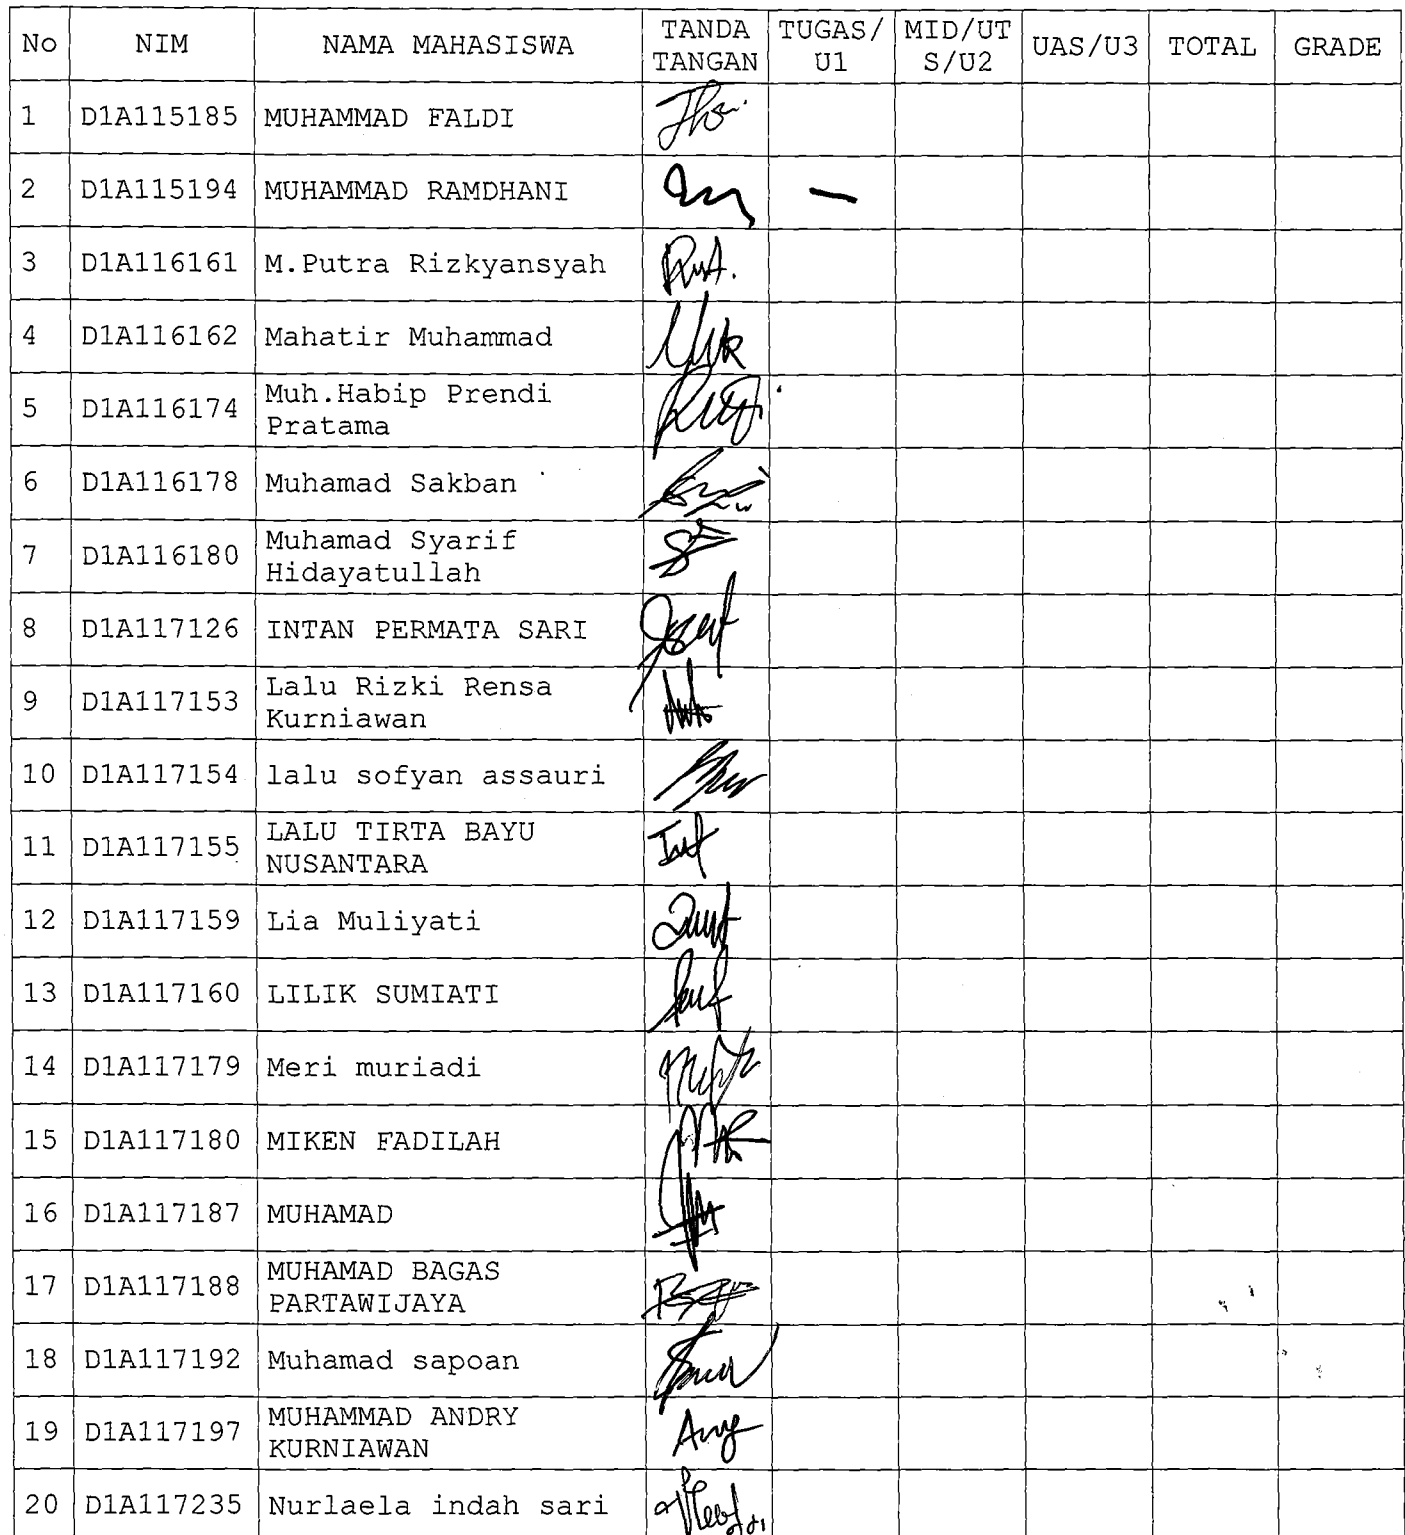 No NIM NAMA MAHASISWA TANDA TANGAN TUGAS/U1 MID/UTS/U2 UAS/U3 TOTAL GRADE
1 D1A115185 MUHAMMAD FALDI
2 D1A115194 MUHAMMAD RAMDHANI —
3 D1A116161 M.Putra Rizkyansyah
4 D1A116162 Mahatir Muhammad
5 D1A116174 Muh.Habip Prendi
Pratama
6 D1A116178 Muhamad Sakban
7 D1A116180 Muhamad Syarif
Hidayatullah
8 D1A117126 INTAN PERMATA SARI
9 D1A117153 Lalu Rizki Rensa
Kurniawan
10 D1A117154 lalu sofyan assauri
11 D1A117155 LALU TIRTA BAYU
NUSANTARA
12 D1A117159 Lia Muliyati
13 D1A117160 LILIK SUMIATI
14 D1A117179 Meri muriadi
15 D1A117180 MIKEN FADILAH
16 D1A117187 MUHAMAD
17 D1A117188 MUHAMAD BAGAS
PARTAWIJAYA
18 D1A117192 Muhamad sapoan
19 D1A117197 MUHAMMAD ANDRY
KURNIAWAN
20 D1A117235 Nurlaela indah sari